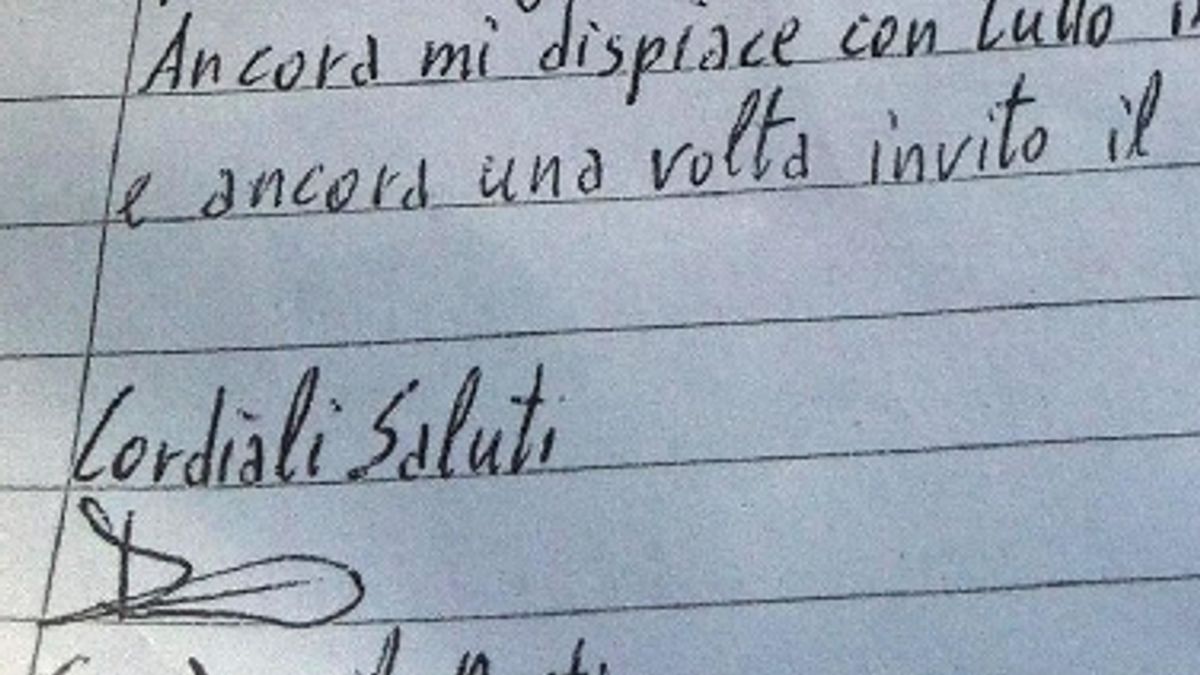 Ancora mi dispiace con tutto
e ancora una volta invito il
Cordiali Saluti